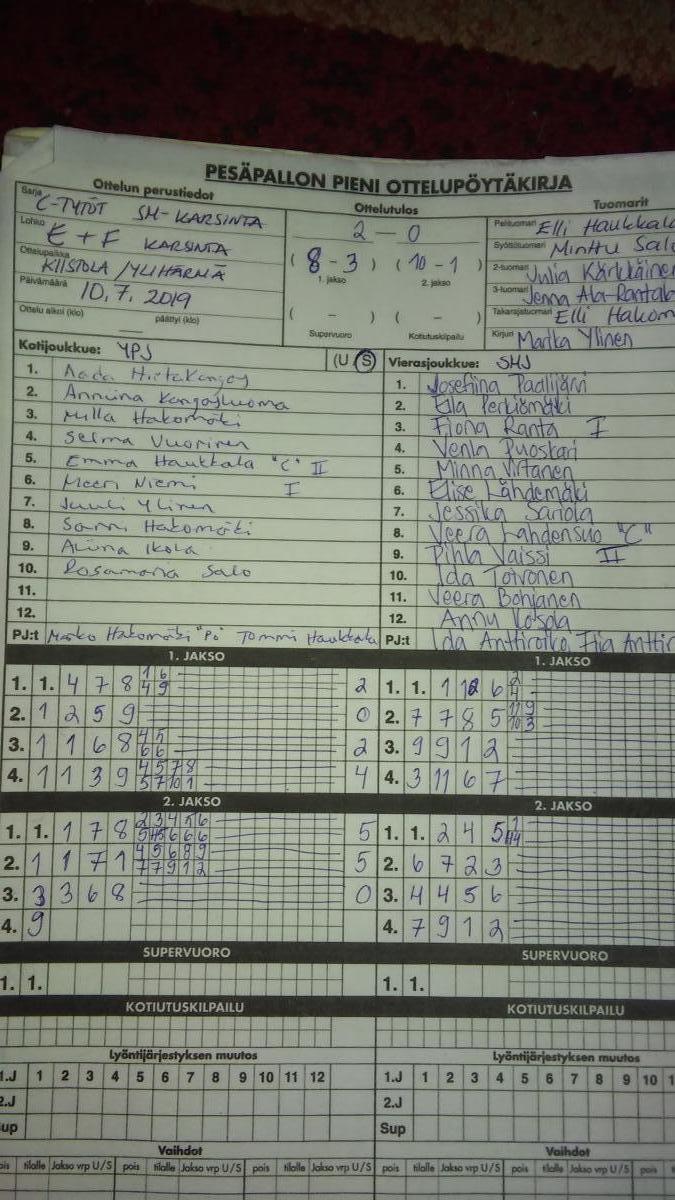 PESÄPALLON PIENI OTTELUPÖYTÄKIRJA
Ottelun perustiedot
Sarja C-TYTÖT SM-KARSINTA
Lohko E + F KARSINTA
Ottelupaikka KIISTOLA / YLIHÄRMÄ
Päivämäärä 10.7.2019
Ottelu alkoi (klo) päättyi (klo)
Ottelutulos
2 – 0
(8 - 3) (10 - 1)
1. jakso 2. jakso
( – ) ( – )
Supervuoro Kotiutuskilpailu
Tuomarit
Pelituomari Elli Haukkala
Syöttötuomari Minttu Salo
2-tuomari Julia Kärkkäinen
3-tuomari Jenna Ala-Rantala
Takarajatuomari Elli Hakom
Kirjuri Marika Ylinen
Kotijoukkue: YPJ (U / S)
1. Aada Hietakangas
2. Anniina Kangasluoma
3. Milla Hakomäki
4. Selma Vuorinen
5. Emma Haukkala "C" II
6. Meeri Niemi I
7. Juuli Ylinen
8. Sanni Hakomäki
9. Alina Ikola
10. Rosamaria Salo
11.
12.
PJ:t Marko Hakomäki "PJ" Tommi Haukkala
Vierasjoukkue: SMJ
1. Josefiina Paalijärvi
2. Ella Perkiömäki
3. Fiona Ranta I
4. Venla Puoskari
5. Minna Virtanen
6. Elise Lähdemäki
7. Jessika Sariola
8. Veera Lahdensuo "C"
9. Pihla Vaissi II
10. Ida Toivonen
11. Veera Bohjanen
12. Anny
PJ:t Ida Anttiroiko, Fiia Anttir
1. JAKSO
1. 1. 4 7 8 1 6 2
4 9
2. 1 2 5 9 0
3. 1 1 6 8 4 5 2
6 6
4. 1 1 3 9 4 5 7 8 4
5 7 10 1
2. JAKSO
1. 1. 1 7 8 2 3 4 5 6 5
2. 1 1 7 1 4 5 6 8 9 5
7 7 9 1 2
3. 3 3 6 8 0
4. 9
SUPERVUORO
1. 1.
KOTIUTUSKILPAILU
Lyöntijärjestyksen muutos
1.J 1 2 3 4 5 6 7 8 9 10 11 12
2.J
Sup
Vaihdot
pois tilalle Jakso vrp U/S pois tilalle Jakso vrp U/S pois tilalle Jakso vrp U/S
1. JAKSO
1. 1. 1 6 2
4
2. 7 7 8 5 11 9
10 3
3. 9 9 1 2
4. 3 11 6 7
2. JAKSO
1. 1. 2 4 5
2. 6 7 2 3
3. 4 4 5 6
4. 7 9 1 2
SUPERVUORO
1. 1.
KOTIUTUSKILPAILU
Lyöntijärjestyksen muutos
1.J 1 2 3 4 5 6 7 8 9 10 1
2.J
Sup
Vaihdot
pois tilalle Jakso vrp U/S pois tilalle Jakso vrp U/S pois tilalle